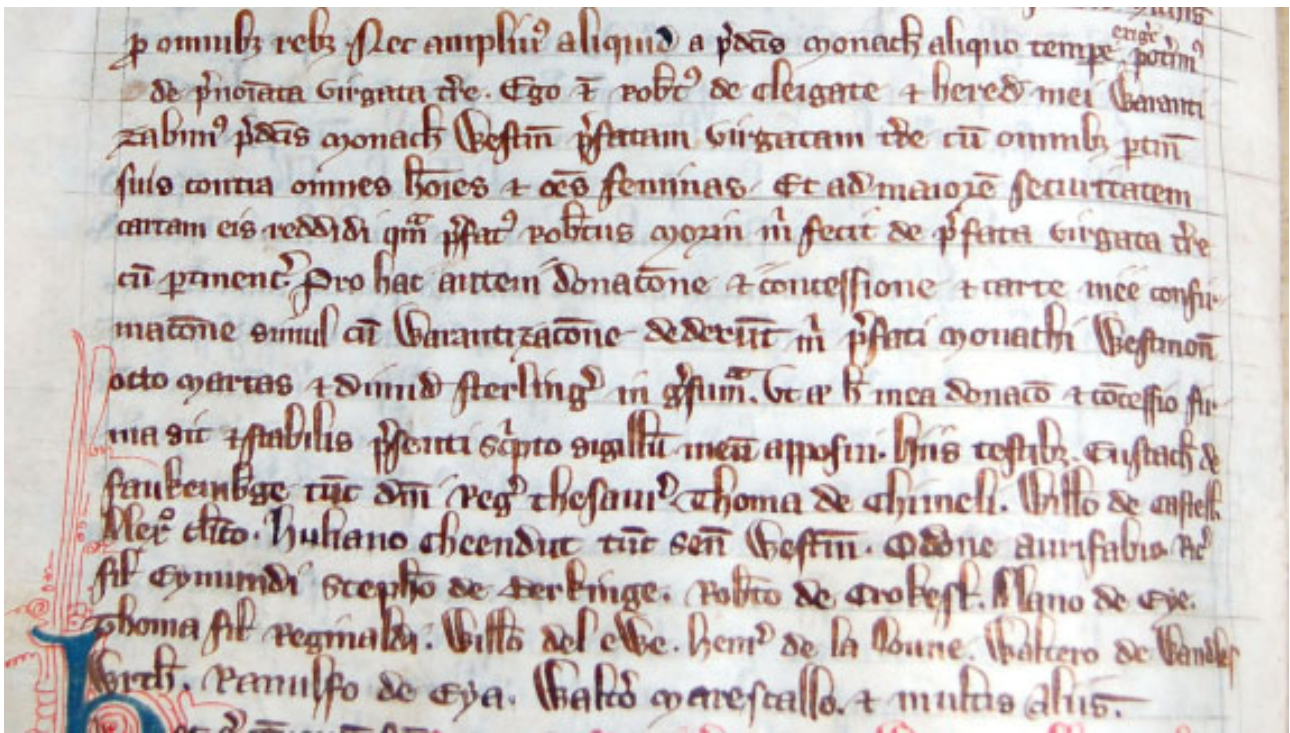 ꝑ omnibꝫ rebꝫ. Nec ampliꝰ aliquid a p̾dc̄is monach̄ aliquo tempe exiḡe pot̾imꝰ
de p̾noīata virgata t̾re. Ego v̄ Rob̄tꝰ de Cleigate ⁊ hered̄ mei Waranti
zabimꝰ p̾dc̄is monach̄ Westm̄ p̾fatam virgatam t̾re cū omnibꝫ ꝑtin̄
suis contra omnes hōies ⁊ oēs feminas. Et ad maiorē securitatem
cartam eis reddidi qm̄ p̾fatꝰ Rob̄tus morin m̄ fecit de p̾fata virgata t̾re
cū ꝑtinent̾. Pro hac autem donatōne ⁊ concessione ⁊ carte mee confir
matōne simul cū Warantizatōne dederūt m̄ p̾fati monachi Westmon̄
octo marcas ⁊ dimid̄ sterling̾ in g̾sum̄. Vt h̄ mea donatō ⁊ cōcessio fir
ma sit ⁊ stabilis p̾senti sc̾pto sigillū meū apposui. hiis testibꝫ. Eustach̄ de
faukenb̾ge tūc dn̄i Reg̾ thesaur̾. Thoma de Chimeli. Will̄o de Castell̄
Alex̾o cl̄ico. huliano cheendut tūc sen̄ Westm̄. Odone aurifabro. Ric̾
fil̄ Eymundi Steph̄o de Berkinge. Rob̄to de Crokesl̄. Alano de Eye.
Thoma fil̄ Reginaldi. Will̄o del eWe. henr̾ de la Loune. Waltero de Wandles
Wrth̄. Ranulfo de Eya. Walt̾o marescallo. ⁊ multis aliis.